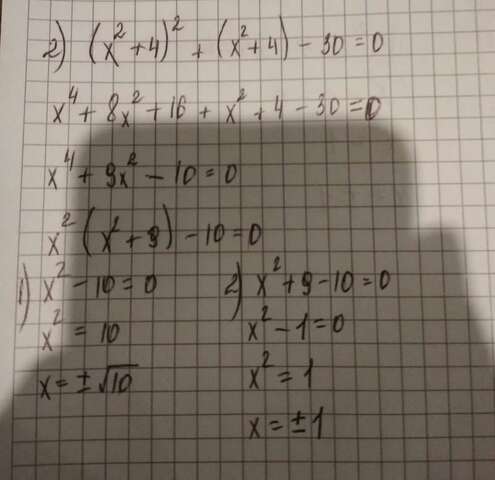 2) (x² + 4)² + (x² + 4) - 30 = 0
x⁴ + 8x² + 16 + x² + 4 - 30 = 0
x⁴ + 9x² - 10 = 0
x² (x² + 9) - 10 = 0
1) x² - 10 = 0
x² = 10
x = ±√10
2) x² + 9 - 10 = 0
x² - 1 = 0
x² = 1
x = ±1